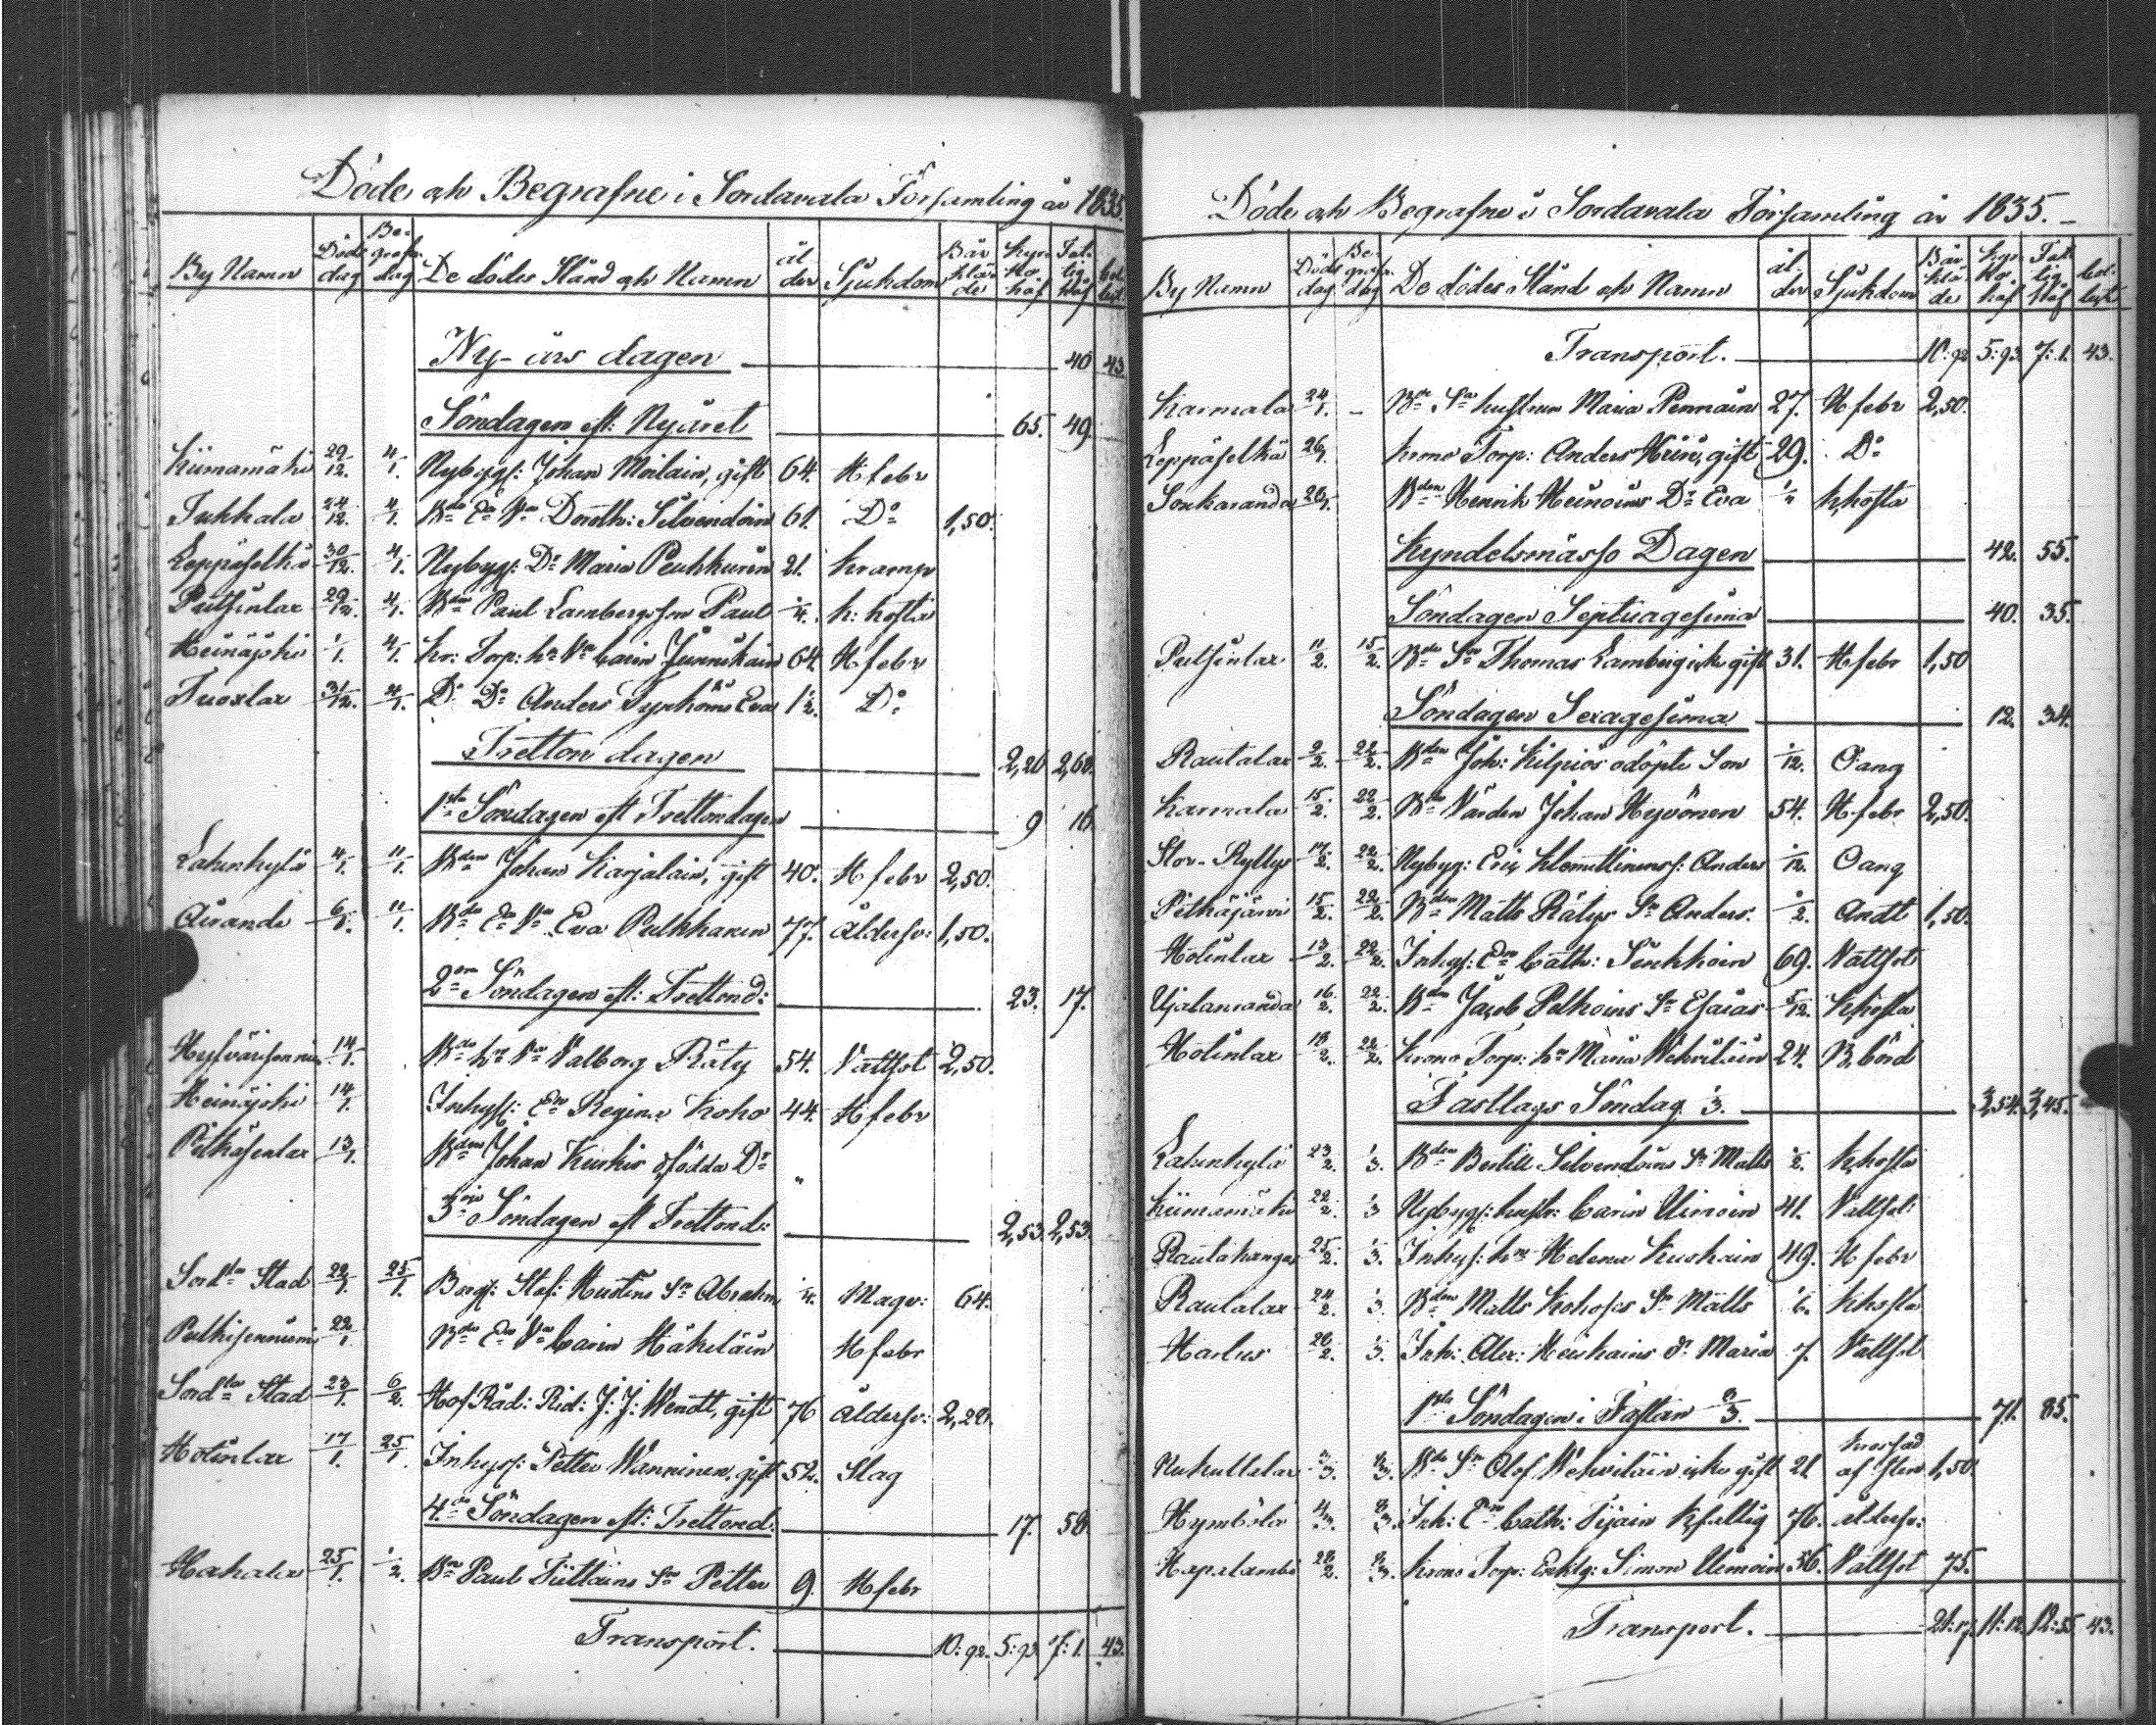 Döde och Begrafne i Sordavala Församling år 1835.
By Namn Döds dag Be- grafn. dag De dödes Stånd och Namn ål der Sjukdom Bår klä de Kyrko håf Fat- tig håf
Ny-års dagen 40 43.
Söndagen eft: Nyåret 65. 49.
Kiimamäki 29/12. 4/1. Nybygg: Johan Moilain, gift 64. H febr
Tukkala 24/12. 4/1. Bde Ea Wa Doroth: Silvendoin 61. Do 1,50.
Leppäselkä 30/12. 4/1. Nybygg: Dr Maria Peuhkurin 21. Kramp
Putsinlax 29/12. 4/1. Bdn Paul Lambergs son Paul k: hosta
Heinäjoki 1/1. 4/1. Kr: Torp: hu Wa Carin 64. H febr
Tuoxlax 31/12. 4/1. Do Do Anders Eva 1½. Do
Tretton dagen 2,26 2,60.
1sta Söndagen eft Trettondagen 9 16
Lahenkylä 4/1. 11/1. Bden Johan Karjalain, gift 40. H febr 2,50.
Airanda 6/1. 11/1. Bde Ea Wa Eva Pulkkanen 77. Åldersv: 1,50.
2en Söndagen eft: Trettond: 23. 17.
14/1. Bde hu Wa Valborg Räty 54. Vattsot 2,50.
Heinäjoki 14/1. Inhys: En Regina Koho 44. H febr
13/1. Bden Johan Kuskis ofödda Dr "
3die Söndagen eft Trettond: 2,53. 2,53.
Sordla Stad 22/1. 25/1. Borg: Staf: Hustins Sn Abraham Magv: 64.
22/1 Bde En Wa Carin Häkiläin H febr
Sordla Stad 23/1. 6/2. Hof Råd: Rid: J: J: Wendt, gift 76 Åldersv: 2,28.
Hotinlax 17/1. 25/1 Inhys: Petter Wanninen, gift 52. Slag
4de Söndagen eft: Trettond: 17. 58
Hakala 25/1. 1/2. Bn Paul Sn Petter 9. H febr
Transport. 10:92. 5:93. 7:1. 43.
Döde och Begrafne i Sordavala Församling år 1835.
By Namn Döds dag Be- grafn. dag De dödes Stånd och Namn ål der Sjukdom Bår klä de Kyrko håf Fat- tig håf
Transport. 10:92 5:93. 7:1. 43.
Karmala 24/1. – Bde Sn hustrun Maria Pennain 27. H febr 2,50.
Leppäselkä 26/1. Krono Torp: Anders gift 29. Do
Sonkaranda 26/1. Bden Henrik Heinoins Dr Eva k,hosta
Kyndelsmässo Dagen 42. 55.
Söndagen Septuagesima 40. 35.
Putsinlax 11/2. 15/2. Bde Sn Thomas Lamberg icke gift 31. H febr 1,50
Söndagen Sexagesima 12. 34.
Rautalax 9/2. 22/2. Bden Joh: Kilpiös odöpte Son 1/12. Oang
Karmala 15/2. 22/2. Bde Värden Johan Hyvönen 54. H febr 2,50.
Stor-Ryttys 17/2. 22/2. Nybyg: Eric Klemettinens s: Anders 1/12. Oang
Pitkäjärvi 15/2. 22/2. Bden Matts Rätys Sn Anders. Andt 1,50.
Hotinlax 13/2. 22/2. Inhys: En Cath: Sinkkoin 69. Vattsot
Ujalanranda 16/2. 22/2. Bdn Jacob Pelkoins Sn Esaias 5/12. K,hosta
Hotinlax 18/2. 22/2. Krono Torp: hu Maria Wehviläin 24. B,börd
Fastlags Söndag 1/3. 3,54. 3,45.
Lahenkylä 23/2. 1/3. Bden Bertill Silvendoins Sn Matts K,hosta
Kiimamäki 22/2. 1/3 Nybygg: hustr: Carin Uimoin 41. Vattsot:
Rautakangas 25/2. 1/3. Inhys: hu Helena Kuskain 49. H febr
Rautalax 24/2. 1/3. Bden Matts Kohoses Sn Matts K,hosta
Harlus 20/2. 1/3. Inh: Alex: Heiskains dr Maria 7. Vattsot
1sta Söndagen i Fastan 8/3. 71. 85.
Nukuttalax 3/3. 8/3. Bde Sn Olof Wehviläin icke gift 21 krossad af sten 1,50.
Hympölä 4/3. 8/3. Inh: En Cath: Tijain K,fattig 76. åldersv:
Haparlambi 28/2. 8/3. Krono Torp: Enkl: Simon Uimoin 56. Vattsot 75.
Transport. 21:17 11:12. 12:55 43.